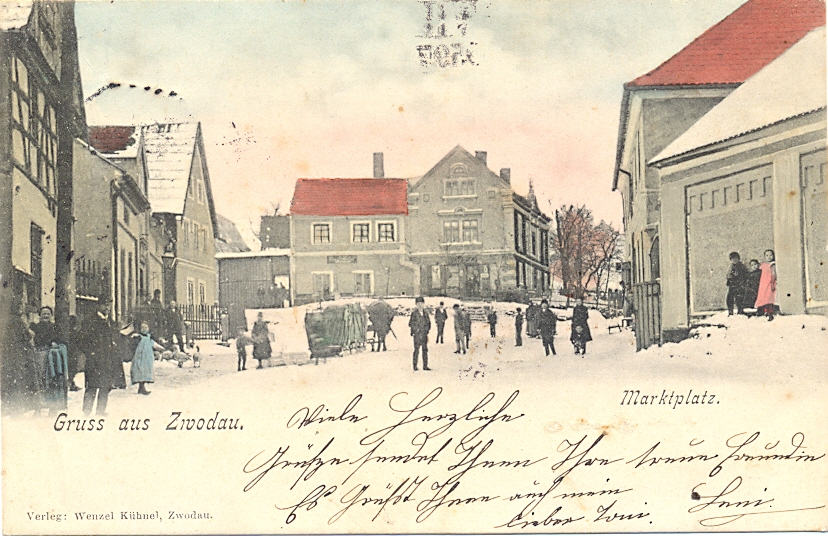 Marktplatz.
Gruss aus Zwodau.
Viele Herzliche
Grüsze sendet Ihnen Ihre treue Freundin
Es Grüsst Ihnen auch mein Leni.
lieber Toni.
Verleg: Wenzel Kühnel, Zwodau.